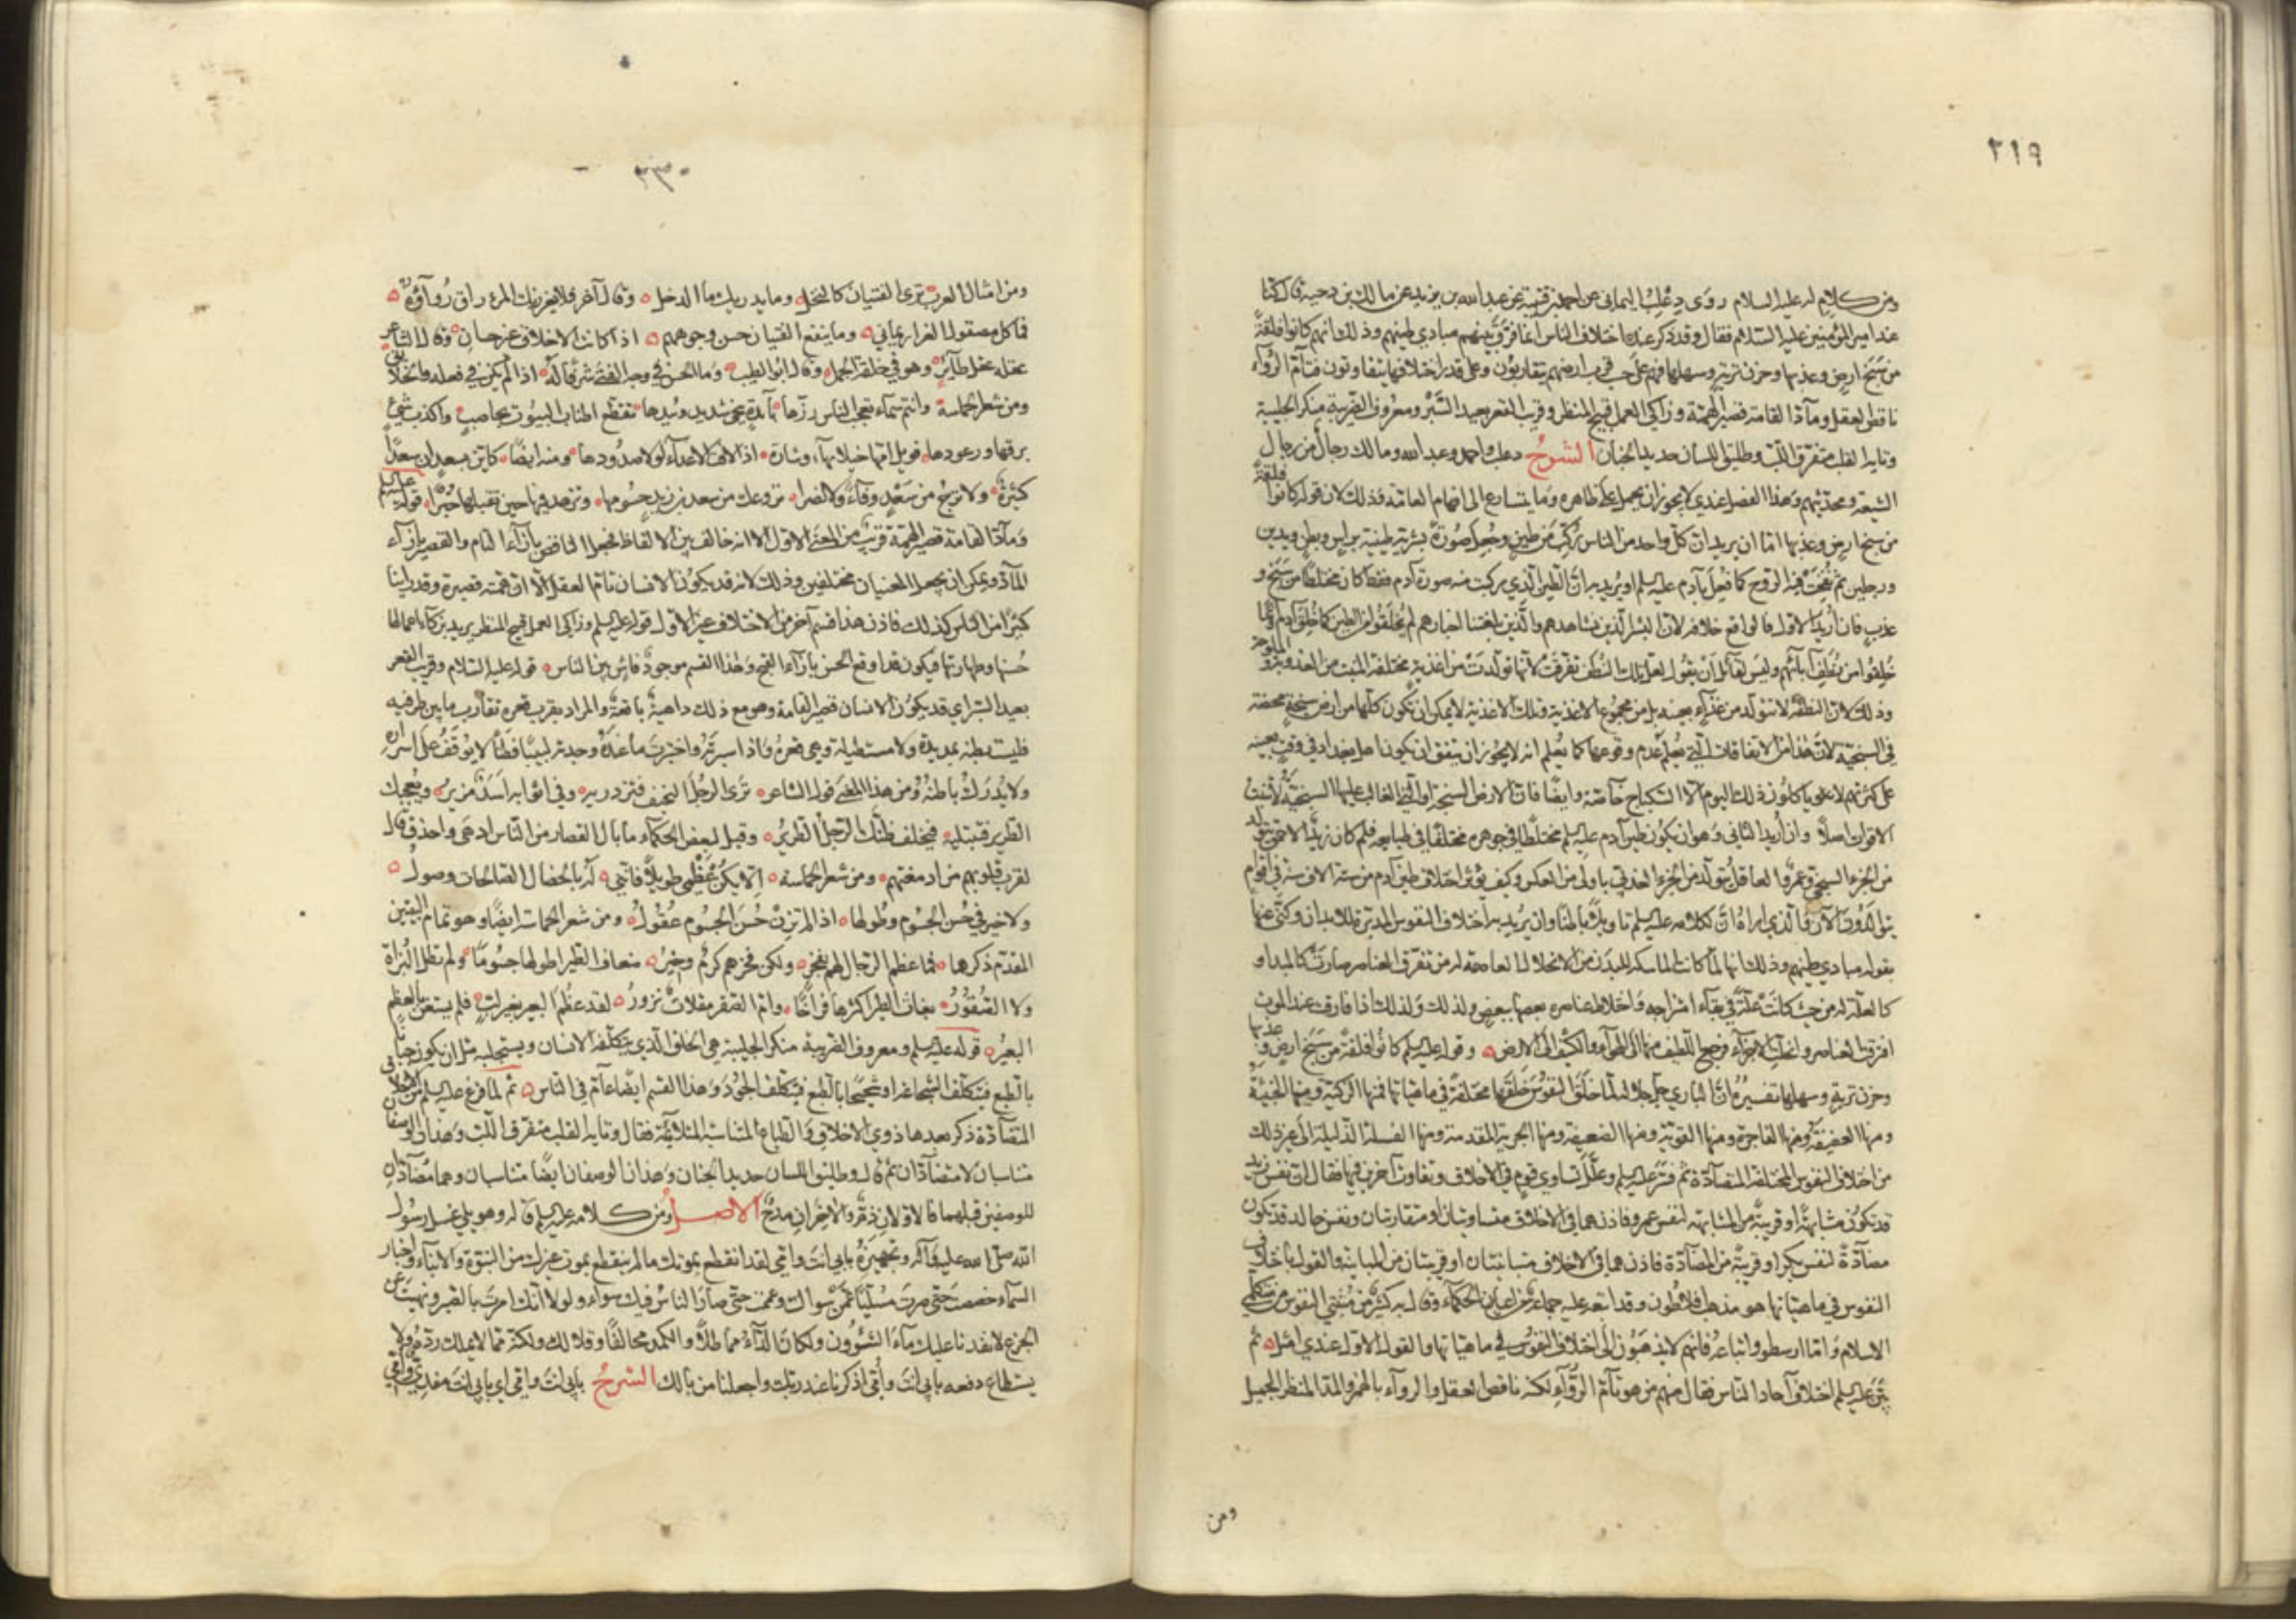 ٢١٩
ومن كلام له عليه السلام روى دعلب اليماني عن احمد بن قتيبة عن عبد الله بن يزيد عن مالك بن دحية قال كنا
عند امير المؤمنين عليه السلام فقال وقد ذكر عنده اختلاف الناس انما فرق بينهم مبادي طينهم وذلك انهم كانوا فلقة
من سبخ ارض وعذبها وحزن تربة وسهلها فهم على حسب قرب ارضهم يتقاربون وعلى قدر اختلافها يتفاوتون فتام الرواء
ناقص العقل وماد القامة قصير الهمة وزاكي العمل قبيح المنظر وقريب القعر بعيد السبر ومعروف الضريبة منكر الجليبة
وتايه القلب متفرق اللب وطليق اللسان حديد الجنان الشرح دعلب واحمد وعبد الله ومالك رجال من رجال
الشيعة ومحدثيهم وهذا الفصل عندي لا يجوز ان يحمل على ظاهره وما يتسارع الى افهام العامة وذلك لان قوله كانوا فلقة
من سبخ ارض وعذبها اما ان يريد ان كل واحد من الناس ركب من طين وجعل صورة بشرية طينية براس وبطن ويدين
ورجلين ثم نفخت فيه الروح كما فعل بآدم عليه السلم او يريد به ان الطين الذي ركبت منه صورة آدم فقط كان مختلطا من سبخ و
عذب فان اريد الاول فالواقع خلافه لان البشر الذين نشاهدهم والذين بلغتنا اخبارهم لم يخلقوا من الطين كما خلق آدم وانما
خلقوا من نطف آبائهم وليس لقائل ان يقول لعل تلك النطف تفرقت لانها تولدت من اغذية مختلفة المنبت من العذوبة والملوحة
وذلك لان النطفة لا تتولد من غذاء بعينه بل من مجموع الاغذية وتلك الاغذية لا يمكن ان تكون كلها من ارض سبخة محضة
في السبخية لان هذا من الاتفاقات التي يعلم عدم وقوعها كما يعلم انه لا يجوز ان يتفق ان يكون اهل بغداد في وقت بعينه
على كثرتهم لا ياكلون ذلك اليوم الا السكباج خاصة وايضا فان الارض السبخة او التي الغالب عليها السبخية لا تنبت
الاقوات اصلا وان اريد الثاني وهو ان يكون طين آدم عليه السلم مختلطا في جوهره مختلفا في طبايعه فلم كان زيد الاحمق يتولد
من الجزء السبخي وعمرو العاقل يتولد من الجزء العذبي باولى من العكس وكيف يؤثر اختلاف طين آدم من ستة آلاف سنة في اقوام
يتوالدون الآن والذي اراه ان لكلامه عليه السلم تاويلا باطنا وان يريد به اختلاف النفوس المدبرة للابدان وكنى عنها
بقوله مبادي طينهم وذلك انها لما كانت الماسكة للبدن من الانحلال العاصمة له من تفرق العناصر صارت كالمبدا و
كالعلة له من حيث كانت علة في بقاء امتزاجه واختلاط عناصره بعضها ببعض ولذلك ولذلك اذا فارقت عند الموت
افترقت العناصر وانحلت الاجزاء فرجع اللطيف منها الى الهواء والكثيف الى الارض وقوله عليه السلم كانوا فلقة من سبخ ارض وعذبها
وحزن تربة وسهلها تفسيره ان الباري جل جلاله لما خلق النفوس خلقها مختلفة في ماهياتها فمنها الزكية ومنها الخبيثة
ومنها العفيفة ومنها الفاجرة ومنها القوية ومنها الضعيفة ومنها الجرية المقدمة ومنها الفسلة الذليلة الى غير ذلك
من اختلاف النفوس المختلفة المتضادة ثم فسر عليه السلم وعلل تساوي قوم في الاخلاق وتفاوت آخرين فيها فقال ان نفس زيد
قد تكون مشابهة او قريبة من المشابهة لنفس عمرو فاذن هما في الاخلاق متساويتان او متقاربتان ونفس خالد قد تكون
مضادة لنفس بكر او قريبة من المضادة فاذن هما في الاخلاق متباينتان او قريبتان من المباينة والقول باختلاف
النفوس في ماهياتها هو مذهب افلاطون وقد اتبعه عليه جماعة من اعيان الحكماء وقال به كثير من مثبتي النفوس من متكلمي
الاسلام واما ارسطو واتباعه فانهم لا يذهبون الى اختلاف النفوس في ماهياتها والقول الاول عندي امثل ثم
بين عليه السلم اختلاف آحاد الناس فقال منهم من هو تام الرواء لكنه ناقص العقل والرواء بالهمز والمد المنظر الجميل
ومن
٣٣٠
ومن امثال العرب ترى الفتيان كالنخل وما يدريك ما الدخل وقال آخر فلا يغررنك المرء راق رواؤه
فما كل مصقول الغرار يماني وما ينفع الفتيان حسن وجوههم اذا كانت الاخلاق غير حسان وقال الشاعر
عقله عقل طائر وهو في خلقة الجمل وقال ابو الطيب وما الحسن في وجه الفتى شرفا له اذا لم يكن في فعله والخلائق
ومن شعر الحماسة وانتم سماء تعجب الناس رزها بآبدة تحمي شديد وئيدها تقطع اطناب البيوت بحاصب واكذب شيء
برقها ورعودها فويل امها خيلا بهاء وشارة اذا لاقت الاعداء لولا صدودها ومنه ايضا كاثر بسعد ان سعدا
كثيرة ولا ترج من سعد وفاء ولا نصرا يروعك من سعد بن زيد جسومها وتزهد فيها حين تقتلها خبرا قوله عليه السلم
وماد القامة قصير الهمة قريب من المعنى الاول الا انه خالف بين الالفاظ فجعل الناقص بازاء التام والقصير بازاء
الماد ويمكن ان يجعل المعنيان مختلفين وذلك لانه قد يكون الانسان تام العقل الا ان همته قصيرة وقد راينا
كثيرا من الناس كذلك فاذن هذا قسم آخر من الاختلاف غير الاول قوله عليه السلم وزاكي العمل قبيح المنظر يريد بزكاء اعماله
حسنها وطهارتها فيكون قد اوقع الحسن بازاء القبح وهذا القسم موجود فاش بين الناس قوله عليه السلام وقريب القعر
بعيد السبر اي قد يكون الانسان قصير القامة وهو مع ذلك داهية باقعة والمراد بقرب قعره تقارب ما بين طرفيه
فليست بطنه بمديدة ولا مستطيلة وهي قعره واذا سبرته واختبرت ما عنده وجدته لبيبا فطنا لا يوقف على اسراره
ولا يدرك باطنه ومن هذا المعنى قول الشاعر ترى الرجل النحيف فتزدريه وفي اثوابه اسد مزير ويعجبك
الطرير فتبتليه فيخلف ظنك الرجل الطرير وقيل لبعض الحكماء ما بال القصار من الناس ادهى واحذق قال
لقرب قلوبهم من ادمغتهم ومن شعر الحماسة الا يكن عظمي طويلا فانني له بالخصال الصالحات وصول
ولا خير في حسن الجسوم وطولها اذا لم تزن حسن الجسوم عقول ومن شعر الحماسة ايضا وهو تمام البيتين
المقدم ذكرهما فما عظم الرجال لهم بفخر ولكن فخرهم كرم وخير ضعاف الطير اطولها جسوما ولم تطل البزاة
ولا الصقور بغاث الطير اكثرها فراخا وام الصقر مقلات نزور لقد عظم البعير بغير لب فلم يستغن بالعظم
البعير قوله عليه السلم ومعروف الضريبة منكر الجليبة هي الخلق الذي يتكلفه الانسان ويستجلبه مثل ان يكون جبانا
بالطبع فيتكلف الشجاعة او شحيحا بالطبع فيتكلف الجود وهذا القسم ايضا عام في الناس ثم لما فرغ عليه السلم من الاخلاق
المتضادة ذكر بعدها ذوي الاخلاق والطباع المتناسبة المتلائمة فقال وتايه القلب متفرق اللب وهذان الوصفان
متناسبان لا متضادان ثم قال وطليق اللسان حديد الجنان وهذان الوصفان ايضا متناسبان وهما مضادان
للوصفين قبلهما فالاولان ذم والاخران مدح الاصل ومن كلامه عليه السلم قاله وهو يلي غسل رسول
الله صلى الله عليه وآله وتجهيزه بابي انت وامي لقد انقطع بموتك ما لم ينقطع بموت غيرك من النبوة والانباء واخبار
السماء خصصت حتى صرت مسليا عمن سواك وعممت حتى صار الناس فيك سواء ولولا انك امرت بالصبر ونهيت عن
الجزع لانفدنا عليك ماء الشؤون ولكان الداء مماطلا والكمد محالفا وقلا لك ولكنه ما لا يملك رده ولا
يستطاع دفعه بابي انت وامي اذكرنا عند ربك واجعلنا من بالك الشرح بابي انت وامي اي بابي انت مفدي وامي